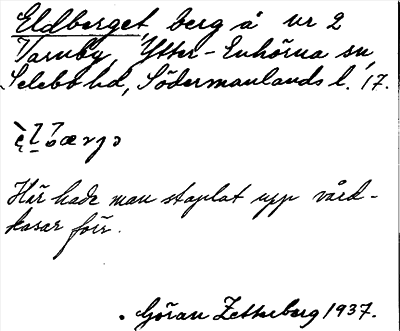 Eldberget, berg å nr 2
Varnby, Ytter-Enhörna sn,
Selebo hd, Södermanlands l. 17.
Här hade man staplat upp vård-
kasar förr.
Göran Zetterberg 1937.